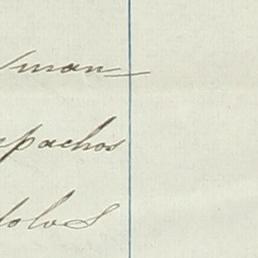 man_
pachos
dolos